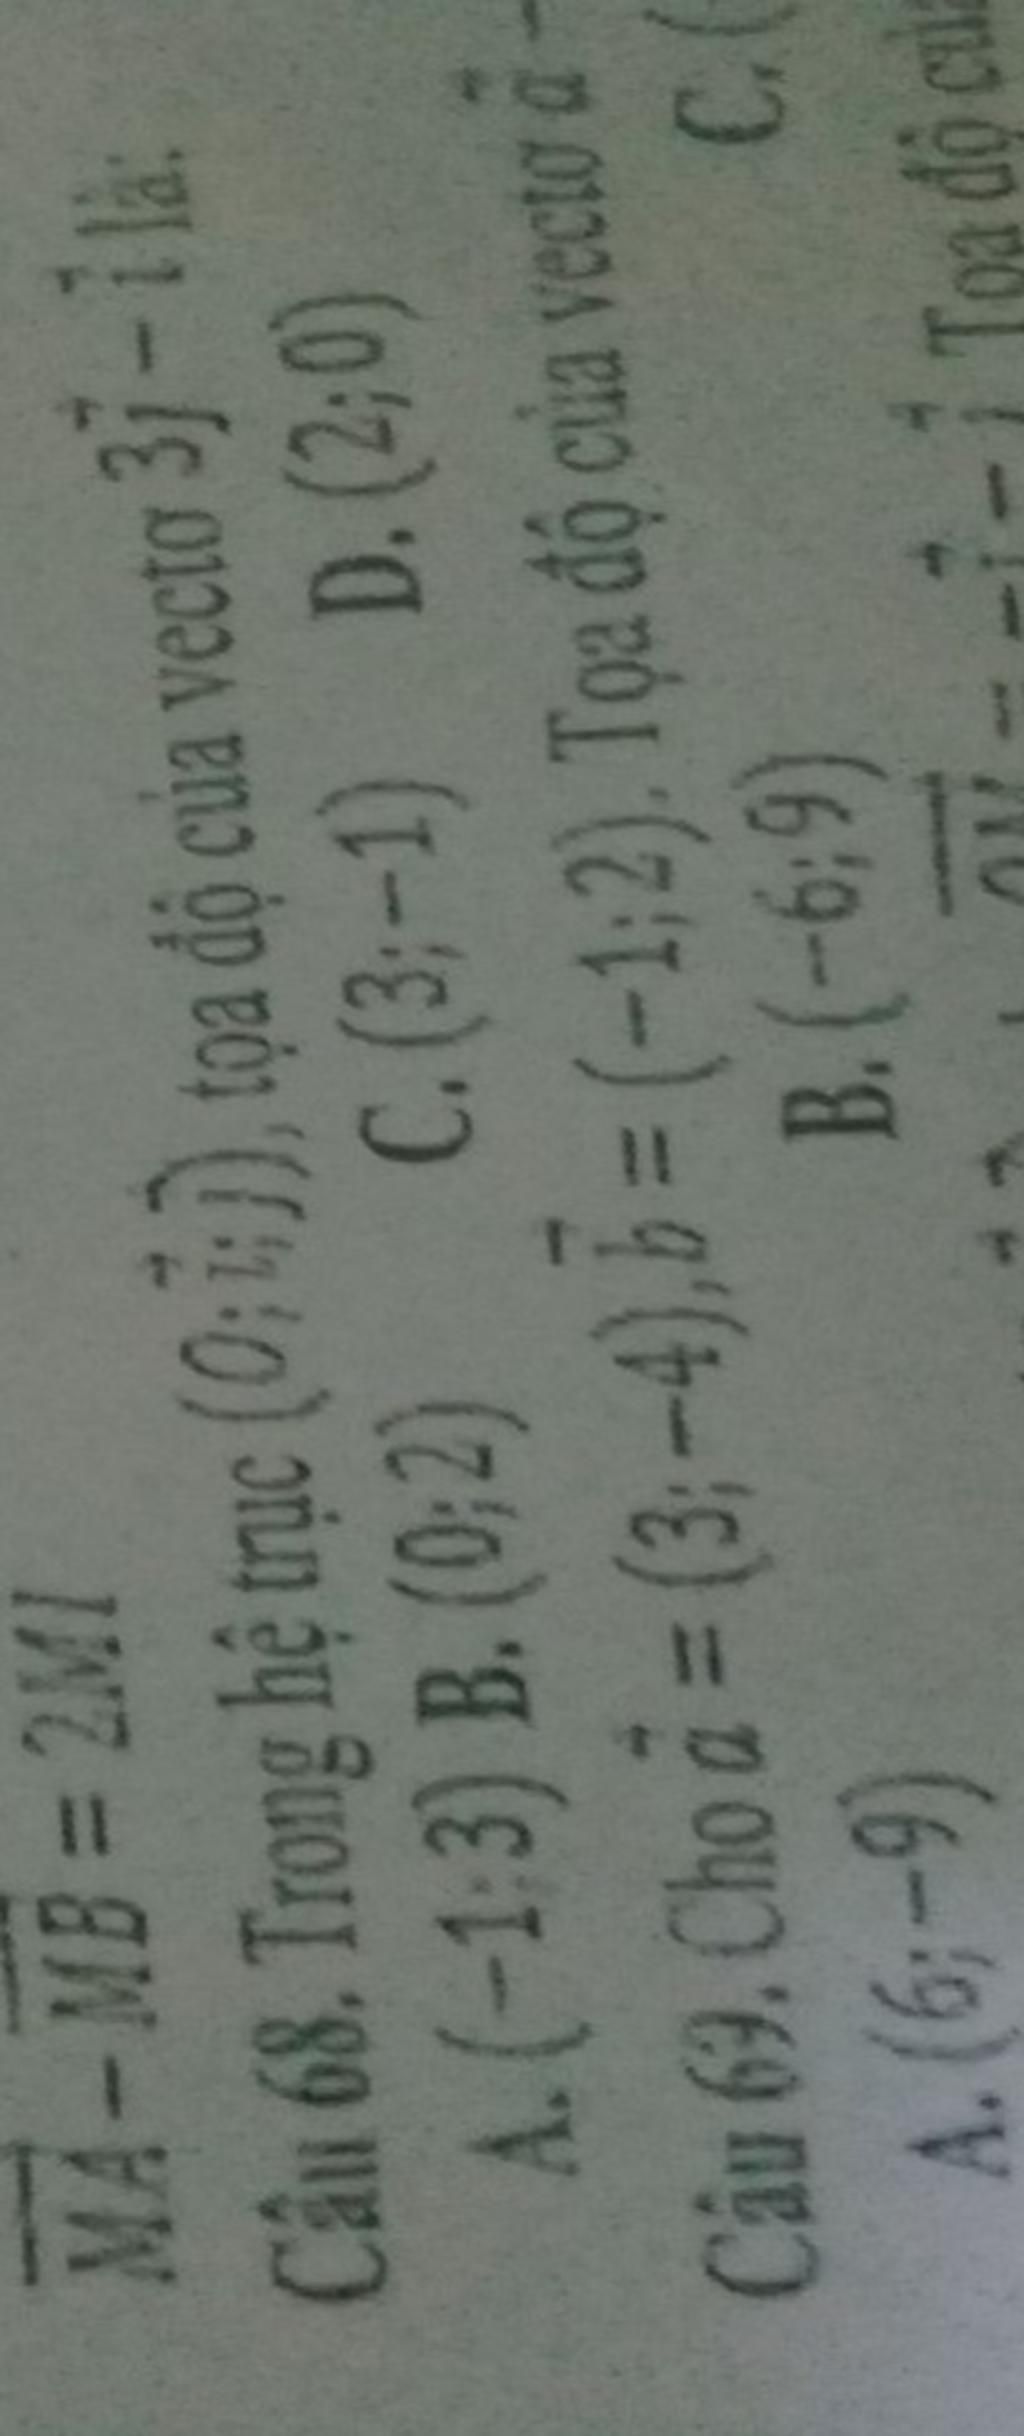 MA - MB = 2MI
Câu 68. Trong hệ trục (O; i; j), tọa độ của vectơ 3j - i là:
A. (-1; 3) B. (0; 2) C. (3; -1) D. (2; 0)
Câu 69. Cho a = (3; -4), b = (-1; 2). Tọa độ của vectơ a -
A. (6; -9) B. (-6; 9) C. (
= -i - j Tọa độ của